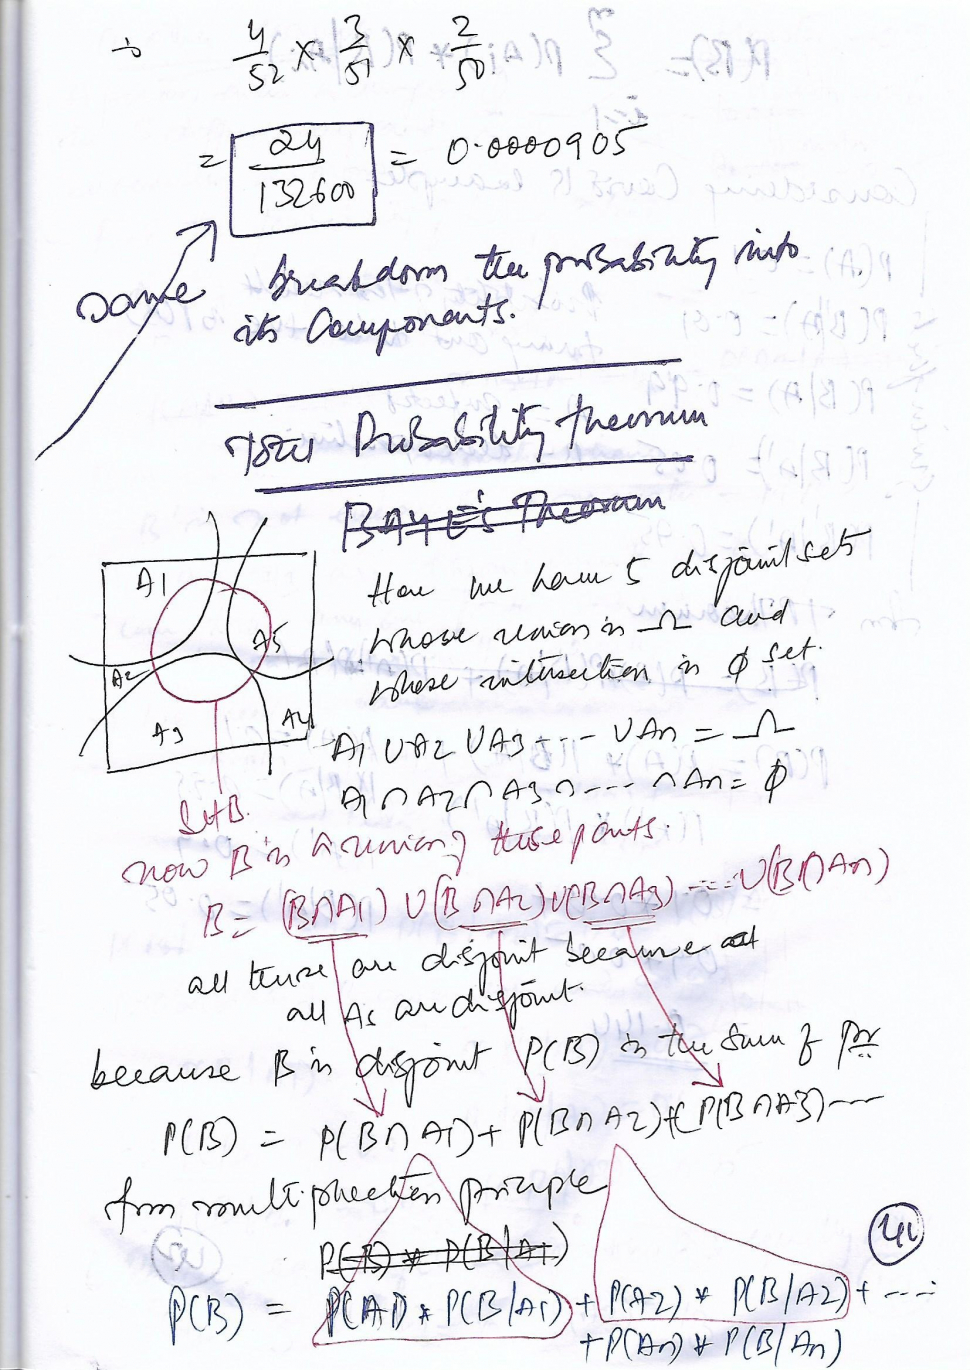 ÷ 4/52 × 3/51 × 2/50
= 24/132600 = 0.0000905
same breakdown the probability into
its Components.
Total Probability theorum
BAYE's Theorum
A1 A2 A3 A4 A5
Here we have 5 disjoint sets
whose union is Ω and
whose intersection is φ set.
A1 ∪ A2 ∪ A3 ---- ∪ An = Ω
A1 ∩ A2 ∩ A3 ∩ ---- ∩ An = φ
Set B.
now B is a union of these parts.
B = (B∩A1) ∪ (B∩A2) ∪ (B∩A3) ---- ∪ (B∩An)
all these are disjoint because
all As are disjoint.
because B is disjoint P(B) is the sum of pr
P(B) = P(B∩A1) + P(B∩A2) + P(B∩A3) ----
from multiplication principle
P(B) * P(B/A1)
P(B) = P(A1) * P(B/A1) + P(A2) * P(B/A2) + ----
+ P(An) * P(B/An)
41